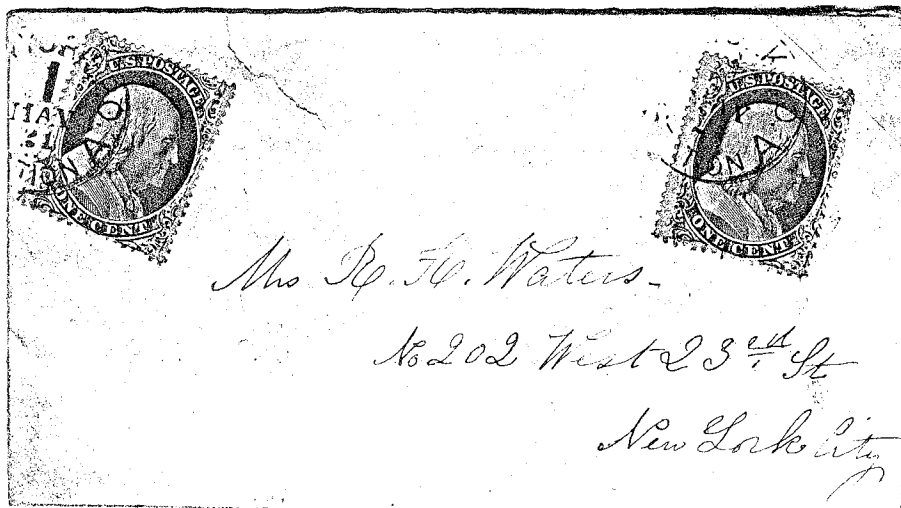 U.S. POSTAGE
ONE CENT
MAY
U.S. POSTAGE
ONE CENT
Mrs R. H. Waters.
No 202 West 23rd St
New York City